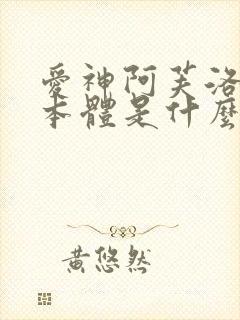 愛神阿芙洛
本體是什麼
黃悠然